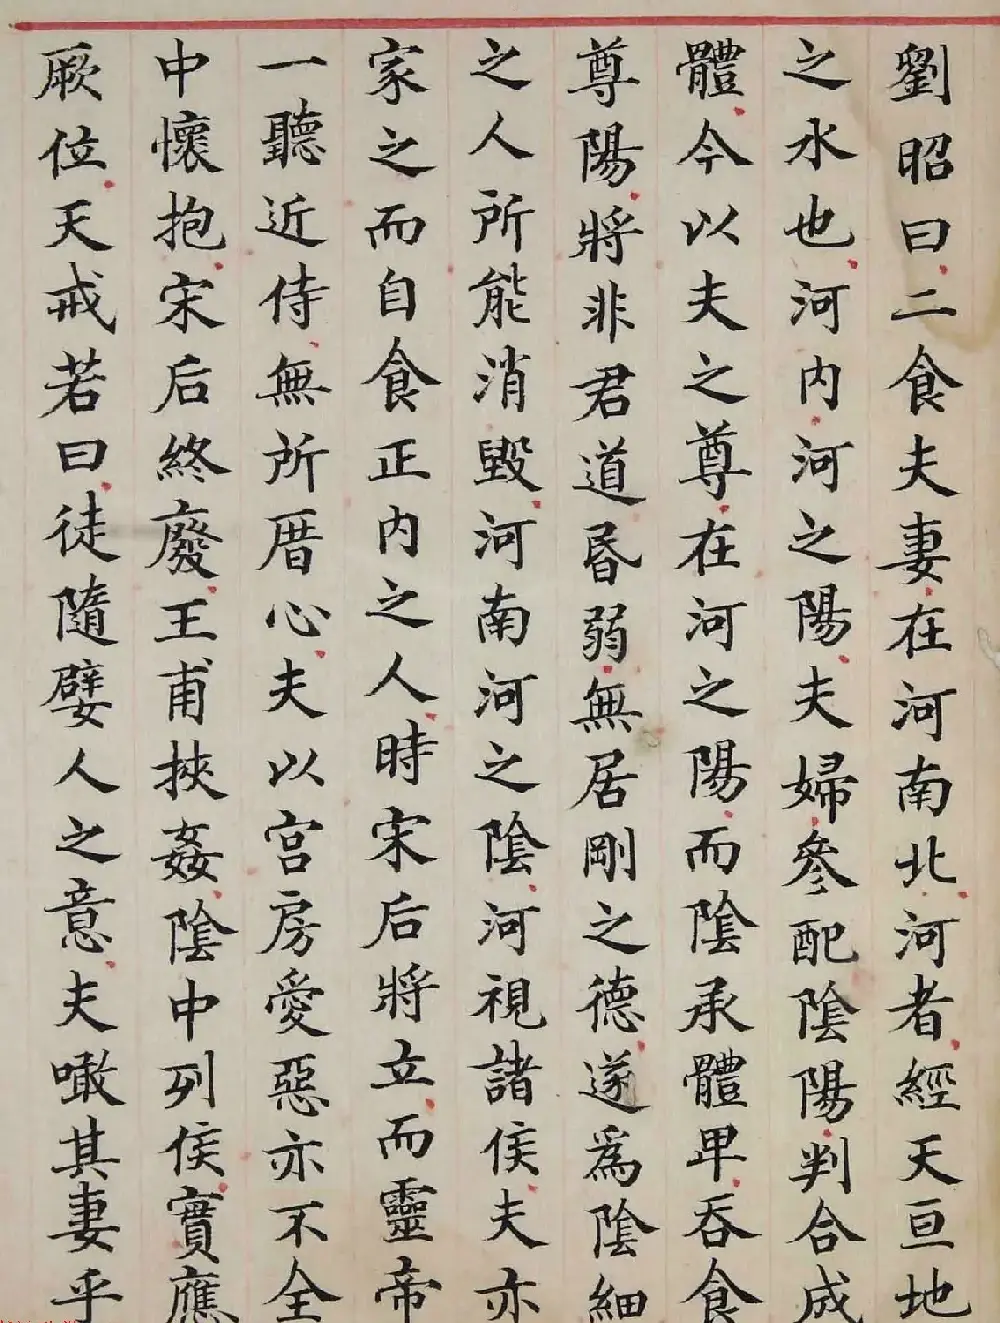 劉昭曰二食夫妻在河南北河者經天亘地
之水也河内河之陽夫婦參配陰陽判合成
體今以夫之尊在河之陽而陰承體卑吞食
尊陽將非君道昬弱無居剛之德遂爲陰細
之人所能消毀河南河之陰河視諸侯夫亦
家之而自食正内之人時宋后將立而靈帝
一聽近侍無所厝心夫以宫房愛惡亦不全
中懷抱宋后終廢王甫挾姦陰中列侯實應
厥位天戒若曰徒隨嬖人之意夫噉其妻乎